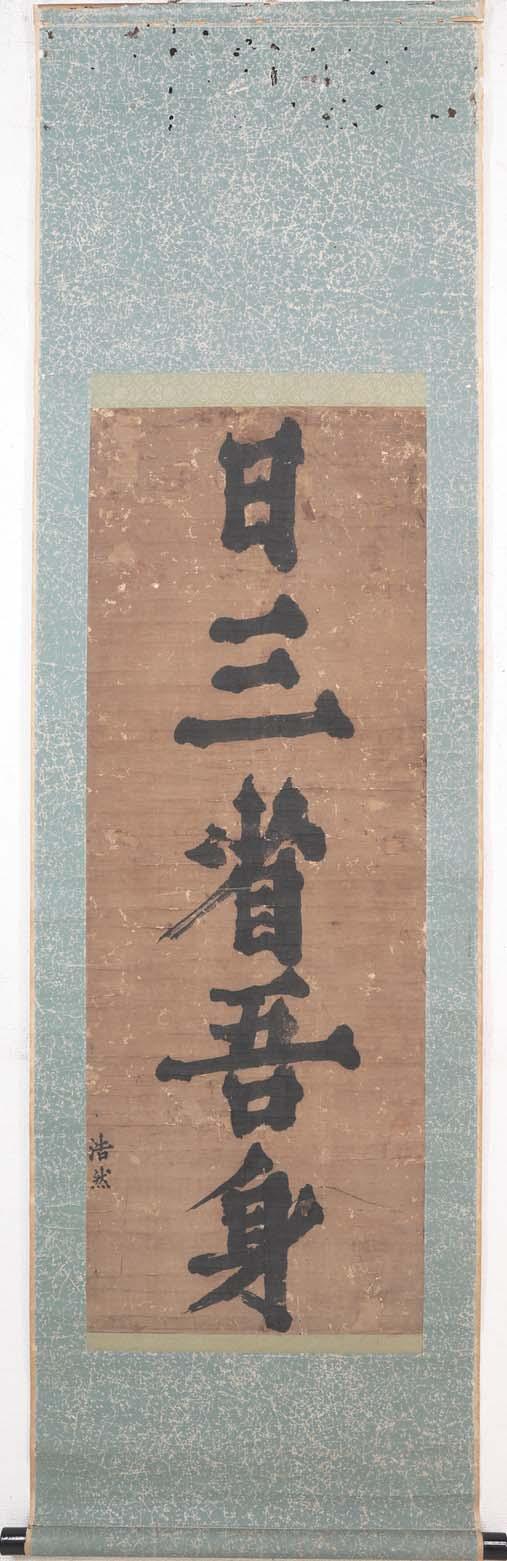 日三省吾身
浩然